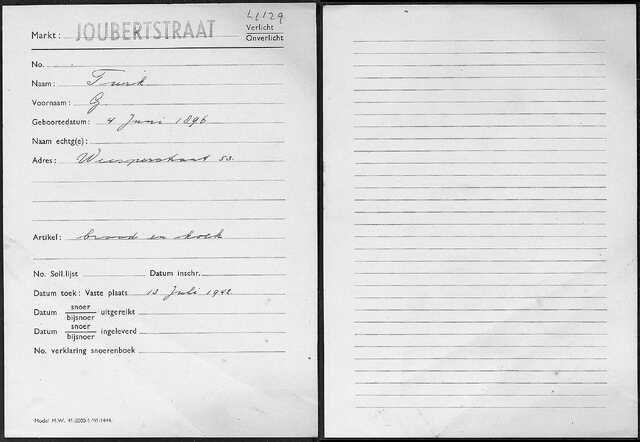 L1/29
Markt: JOUBERTSTRAAT Verlicht
Onverlicht
No.
Naam: Turk
Voornaam: G.
Geboortedatum: 4 Juni 1896
Naam echtg(e):
Adres: Weesperstraat 53.
Artikel: brood en koek
No. Soll.lijst Datum inschr.
Datum toek: Vaste plaats 13 Juli 1942
Datum snoer
bijsnoer uitgereikt
Datum snoer
bijsnoer ingeleverd
No. verklaring snoerenboek
Model M.W.